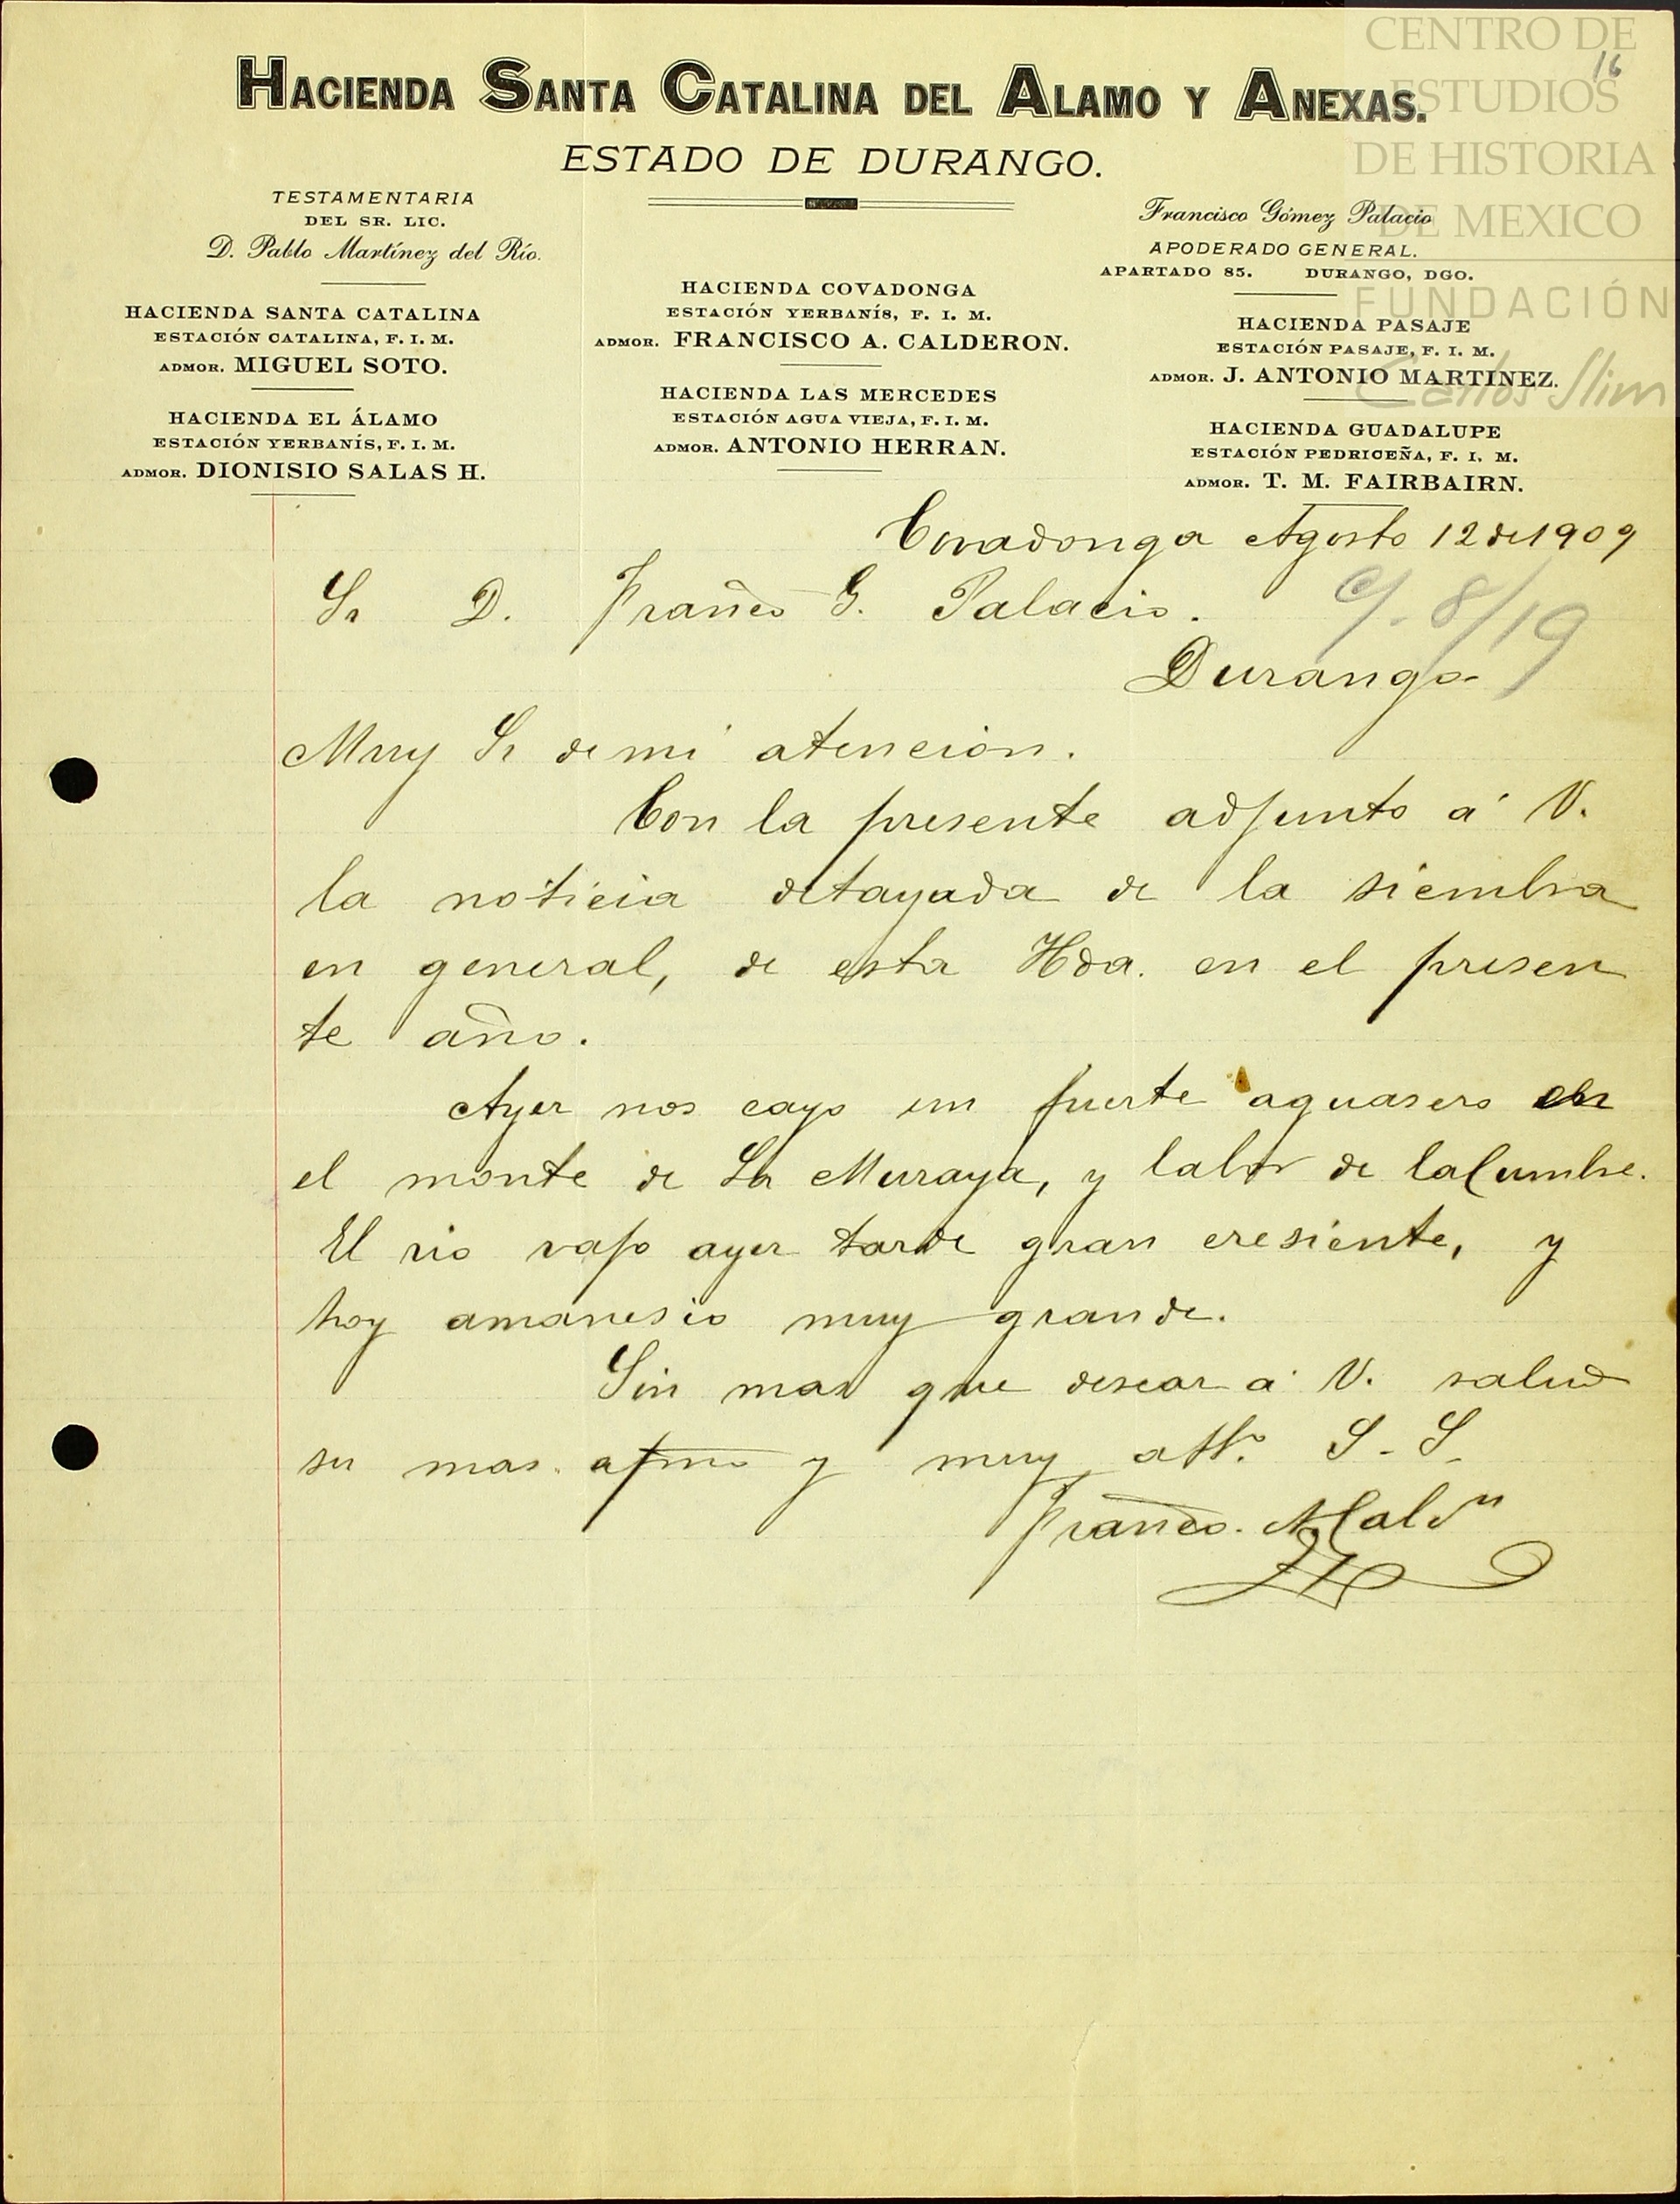 CENTRO DE
ESTUDIOS
DE HISTORIA
DE MEXICO
FUNDACIÓN
Carlos Slim
16
HACIENDA SANTA CATALINA DEL ALAMO Y ANEXAS.
ESTADO DE DURANGO.
TESTAMENTARIA
DEL SR. LIC.
D. Pablo Martínez del Río.
HACIENDA SANTA CATALINA
ESTACIÓN CATALINA, F. I. M.
ADMOR. MIGUEL SOTO.
HACIENDA EL ÁLAMO
ESTACIÓN YERBANÍS, F. I. M.
ADMOR. DIONISIO SALAS H.
HACIENDA COVADONGA
ESTACIÓN YERBANÍS, F. I. M.
ADMOR. FRANCISCO A. CALDERON.
HACIENDA LAS MERCEDES
ESTACIÓN AGUA VIEJA, F. I. M.
ADMOR. ANTONIO HERRAN.
Francisco Gómez Palacio
APODERADO GENERAL.
APARTADO 85. DURANGO, DGO.
HACIENDA PASAJE
ESTACIÓN PASAJE, F. I. M.
ADMOR. J. ANTONIO MARTINEZ.
HACIENDA GUADALUPE
ESTACIÓN PEDRICEÑA, F. I. M.
ADMOR. T. M. FAIRBAIRN.
Covadonga Agosto 12 de 1909
Sr D. Franco G. Palacio.
C/. 8/19
Durango
Muy Sr de mi atencion.
Con la presente adjunto á V.
la noticia detayada de la siembra
en general, de esta Hda. en el presen
te año.
Ayer nos cayo un fuerte aguasero en
el monte de La Muraya, y labor de la Cumbre.
El rio vajo ayer tarde gran cresiente, y
hoy amanesio muy grande.
Sin mas que desear á V. salud
su mas afmo y muy atto. S. S.
Franco. A Calon